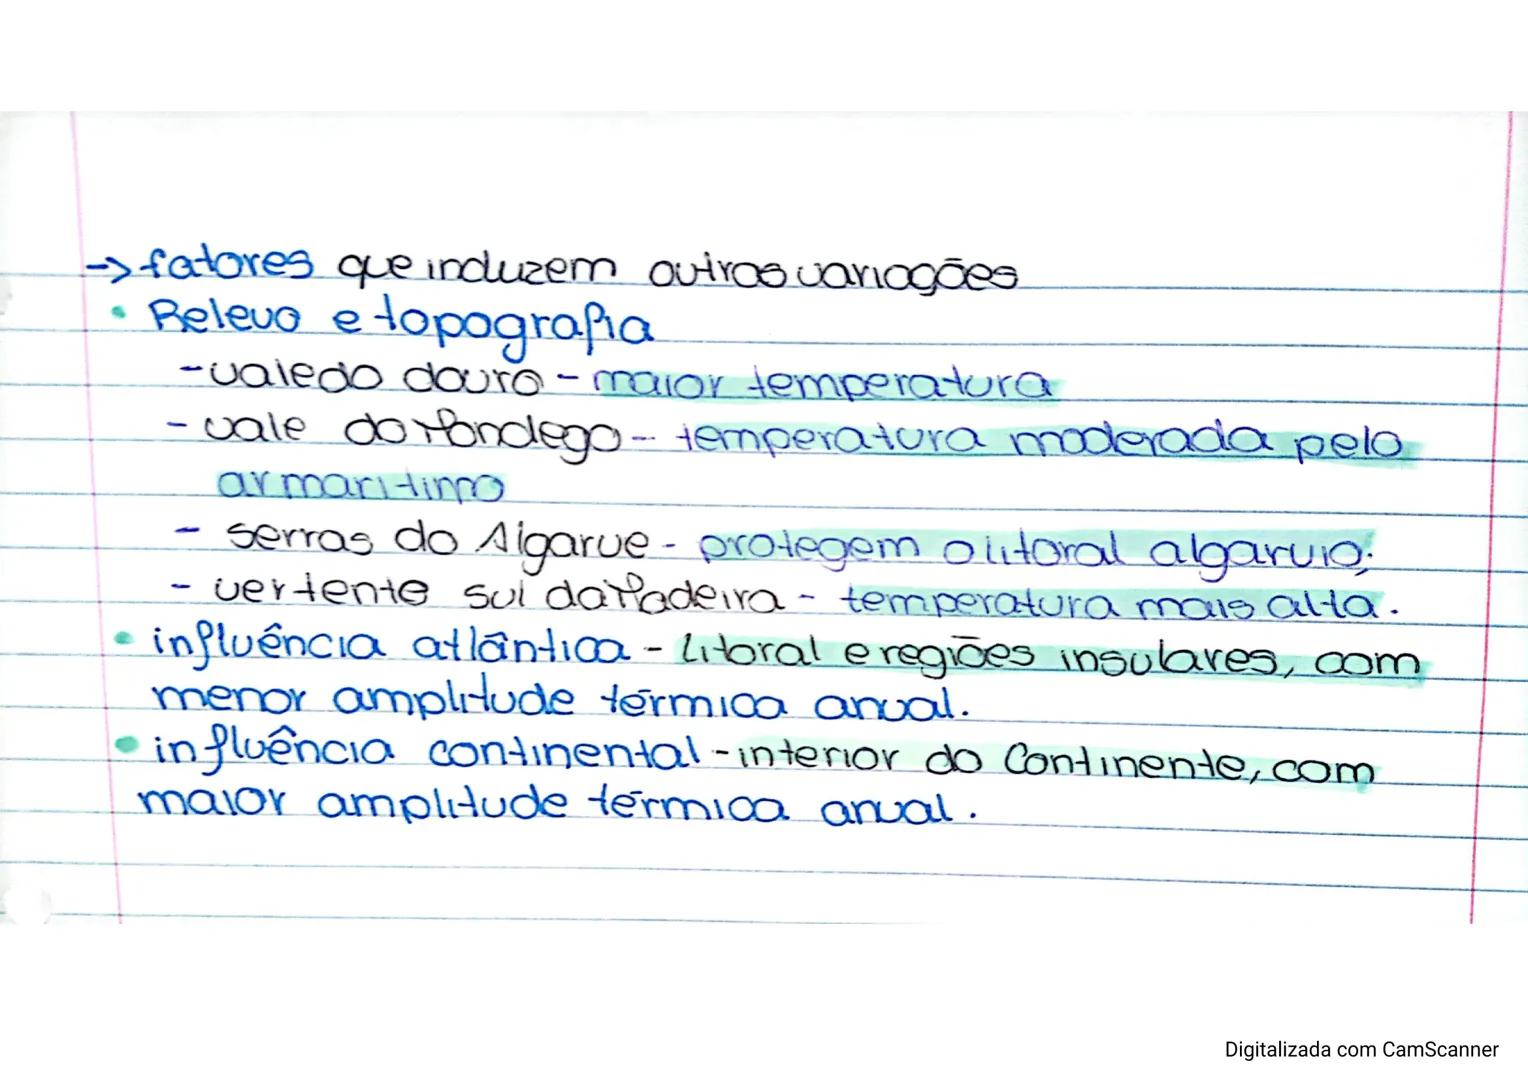 → fatores que induzem outras variações
• Relevo e topografia
- vale do douro - maior temperatura
- vale do Mondego - temperatura moderada pelo
ar maritimo
- serras do Algarve - protegem o litoral algarvio;
- vertente sul da Madeira - temperatura mais alta.
• influência atlântica - Litoral e regiões insulares, com
menor amplitude térmica anual.
• influência continental - interior do Continente, com
maior amplitude térmica anual.
Digitalizada com CamScanner